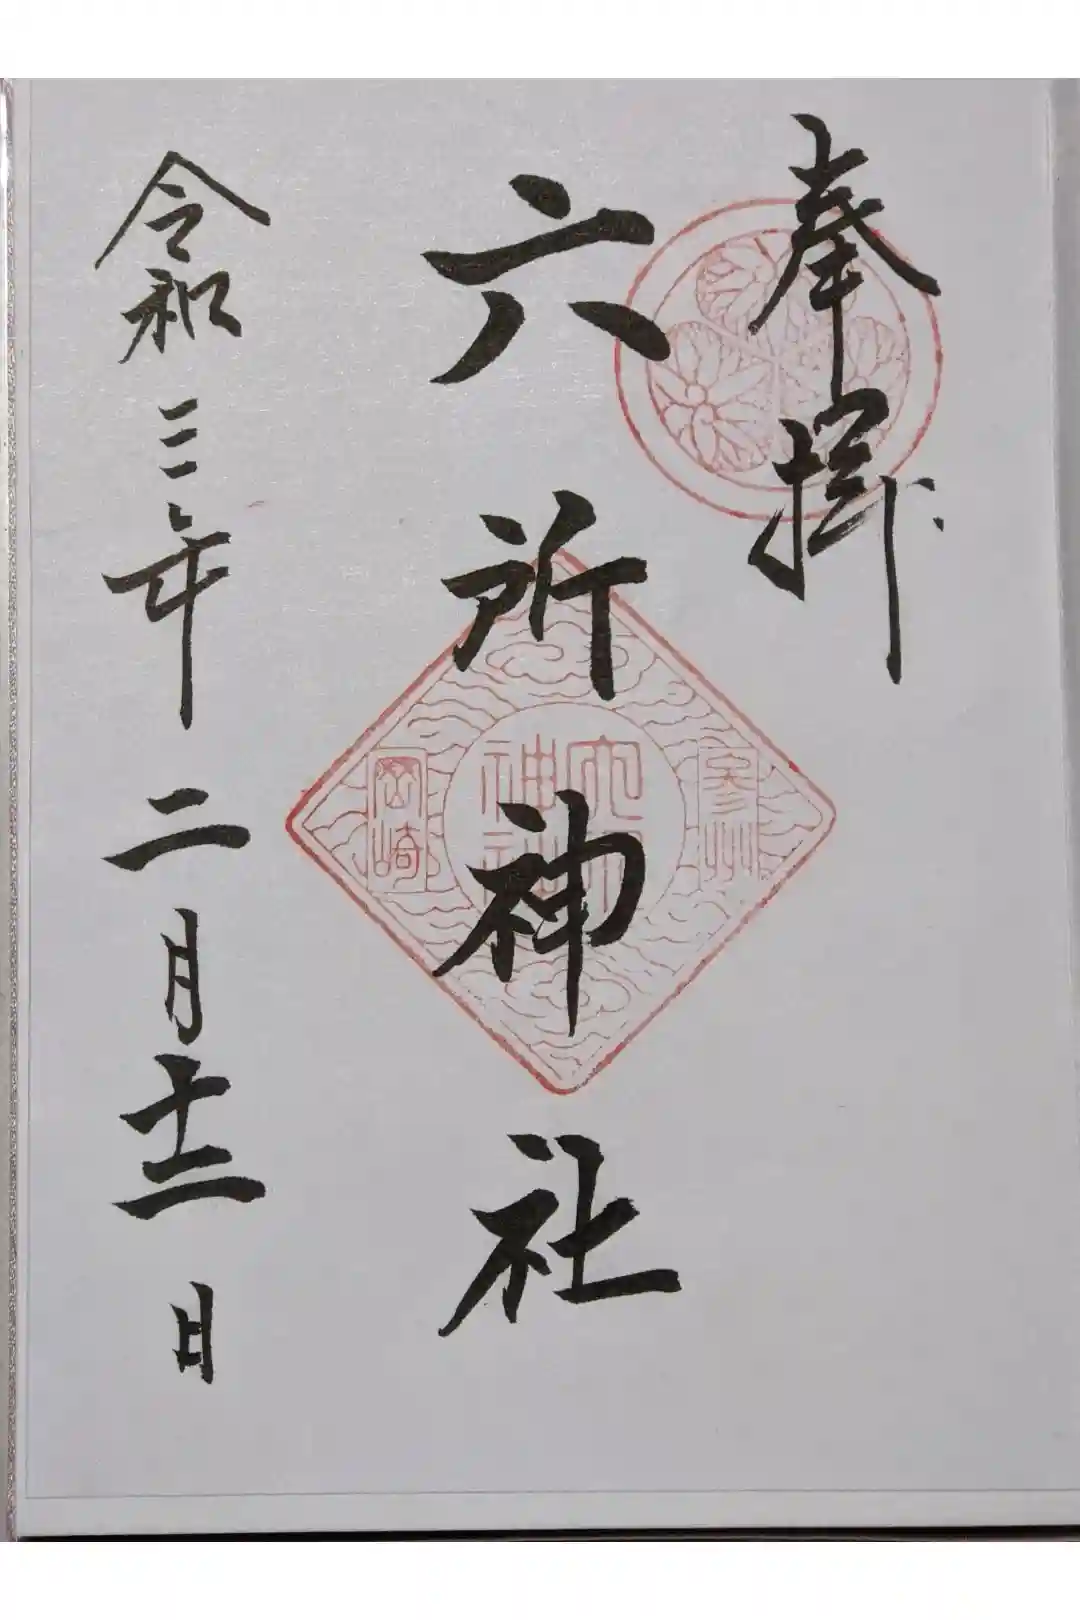 奉拝
六所神社
参州
六所
神社
岡崎
令和三年二月十二日